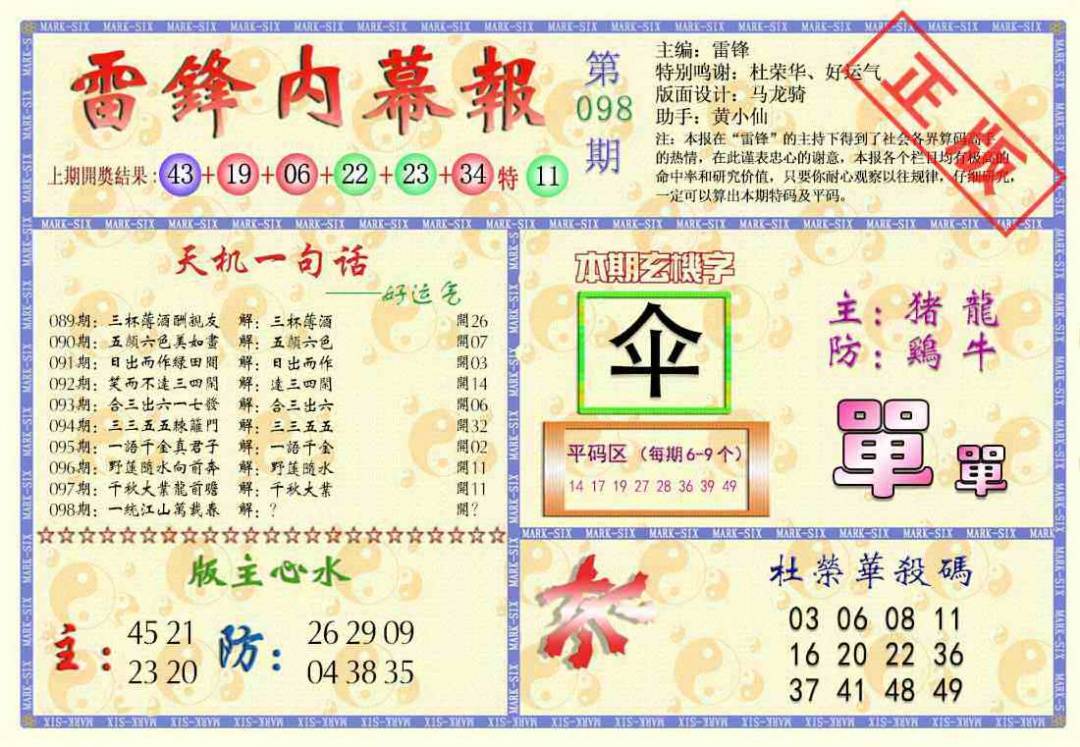 雷鋒内幕報
第098期
主编：雷锋
特别鸣谢：杜荣华、好运气
版面设计：马龙骑
助手：黄小仙
注：本报在“雷锋”的主持下得到了社会各界算码高手
的热情，在此谨表忠心的谢意，本报各个栏目均有极高的
命中率和研究价值，只要你耐心观察以往规律，仔细研究，
一定可以算出本期特码及平码。
正版
上期開獎結果：43+19+06+22+23+34特11
天机一句话
——好运气
089期：三杯薄酒酬親友 解：三杯薄酒 開26
090期：五顏六色美如畫 解：五顏六色 開07
091期：日出而作綠田間 解：日出而作 開03
092期：笑而不達三四閑 解：達三四閑 開14
093期：合三出六一七發 解：合三出六 開06
094期：三三五五棘籬門 解：三三五五 開32
095期：一語千金真君子 解：一語千金 開02
096期：野蓮隨水向前奔 解：野蓮隨水 開11
097期：千秋大業龍前瞻 解：千秋大業 開11
098期：一統江山萬載春 解：? 開?
本期玄機字
伞
平码区（每期6-9个）
14 17 19 27 28 36 39 49
主：猪 龍
防：鷄 牛
單 單
版主心水
主：45 21 防：26 29 09
23 20 04 38 35
杀
杜榮華殺碼
03 06 08 11
16 20 22 36
37 41 48 49
MARK-SIX